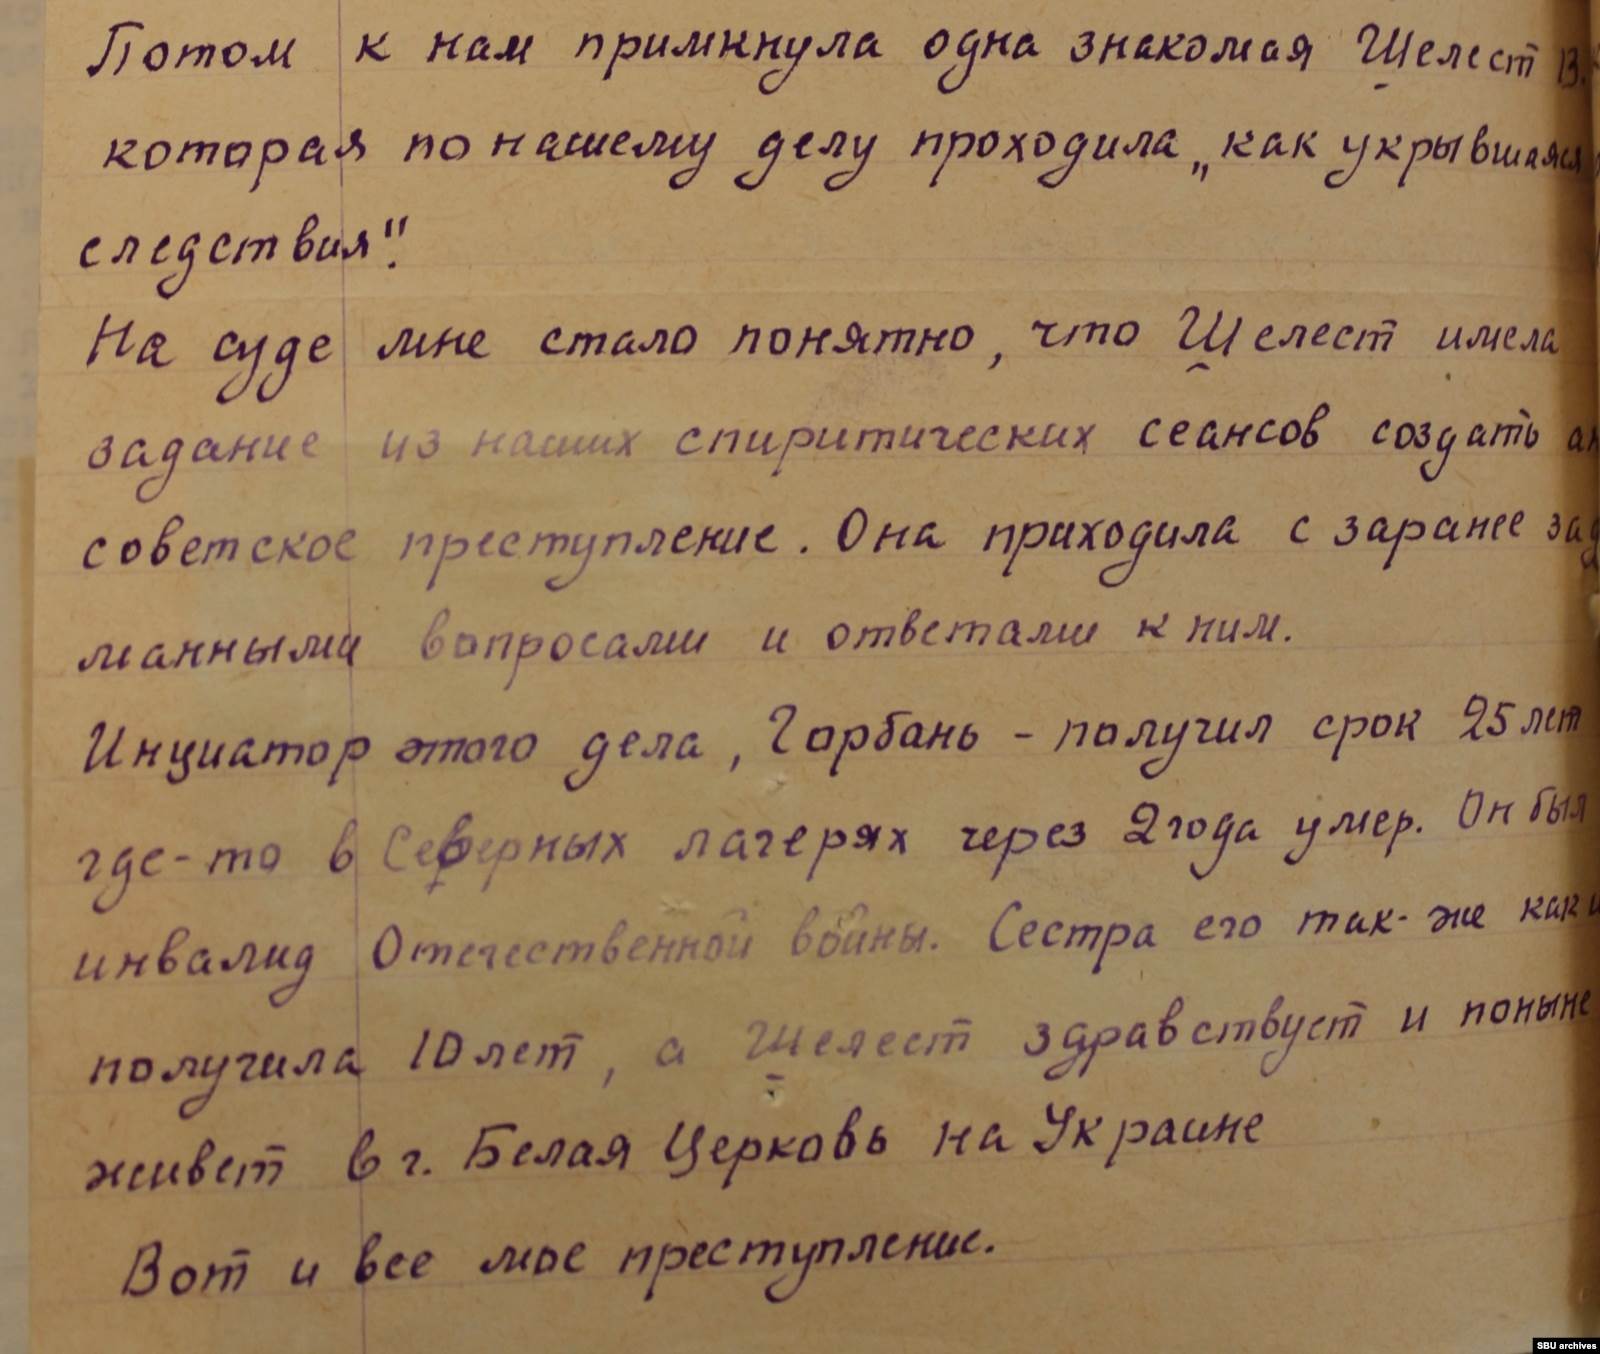 Потом к нам примкнула одна знакомая Шелест В.
которая по нашему делу проходила „как укрывшаяся
следствия".
На суде мне стало понятно, что Шелест имела
задание из наших спиритических сеансов создать ан
советское преступление. Она приходила с заранее зад
манными вопросами и ответами к ним.
Инциатор этого дела, Горбань - получил срок 25 лет
где-то в Северных лагерях через 2 года умер. Он был
инвалид Отечественной войны. Сестра его так-же как и
получила 10 лет, а Шелест здравствует и поныне
живет в г. Белая Церковь на Украине
Вот и все мое преступление.
SBU archives